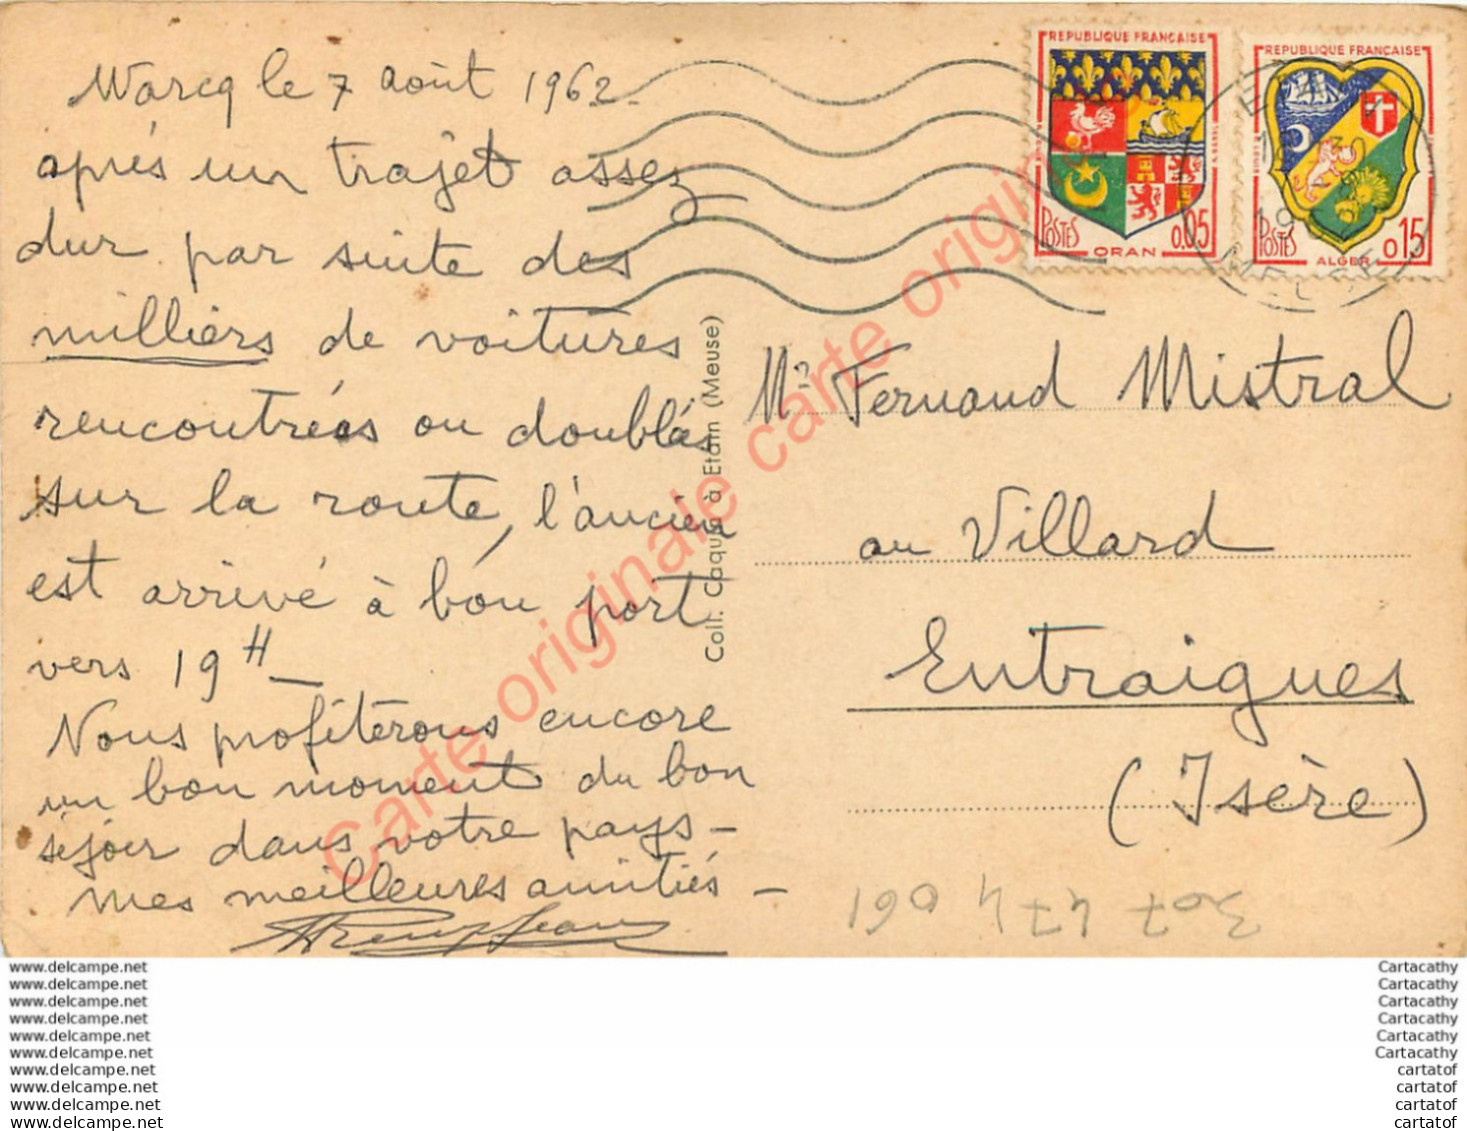 Warcq le 7 août 1962.
après un trajet assez
dur par suite des
milliers de voitures
rencontrées ou doublés
sur la route, l'ancien
est arrivé à bon port
vers 19 H
Nous profitérons encore
un bon moment du bon
séjour dans votre pays_
mes meilleures amitiés _
REPUBLIQUE FRANÇAISE
POSTES
0.05
ORAN
REPUBLIQUE FRANÇAISE
POSTES
0.15
ALGER
Coll. Caquis à Etain (Meuse)
Mr Fernand Mistral
au Villard
Entraigues
(Isère)
307 474 061
Carte originale carte originale
www.delcampe.net
www.delcampe.net
www.delcampe.net
www.delcampe.net
www.delcampe.net
www.delcampe.net
www.delcampe.net
www.delcampe.net
www.delcampe.net
www.delcampe.net
Cartacathy
Cartacathy
Cartacathy
Cartacathy
Cartacathy
Cartacathy
cartatof
cartatof
cartatof
cartatof